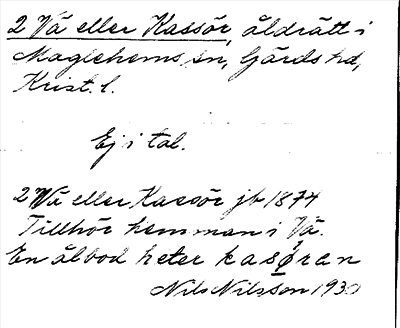 2 Vä eller Kassör, åldrätt i
Maglehems sn, Gärds hd,
Krist. l.
Ej i tal.
2 Vä eller Kassör jb 1874
Tillhör hemman i Vä.
En ålbod heter kasøran
Nils Nilsson 1930